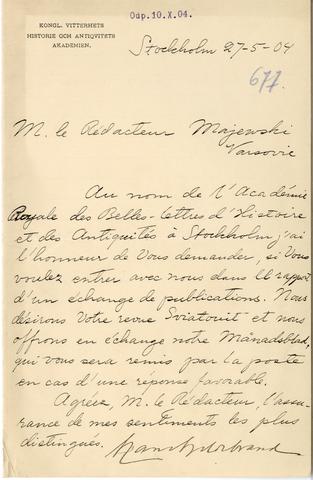 Odp. 10.X.04.
KONGL. VITTERHETS
HISTORIE OCH ANTIQVITETS
AKADEMIEN.
Stockholm 27-5-04
677.
M. le Rédacteur Majewski
Varsovie
Au nom de l'Académie
Royale des Belles-lettres d'Histoire
et des Antiquités à Stockholm j'ai
l'honneur de Vous demander, si Vous
voulez entrer avec nous dans le rapport
d'un échange de publications. Nous
désirons Votre revue Sviatowit et nous
offrons en échange notre Månadsblad,
qui vous sera remis par la poste
en cas d'une réponse favorable.
Agréez, M. le Rédacteur, l'assu-
rance de mes sentiments les plus
distingués.